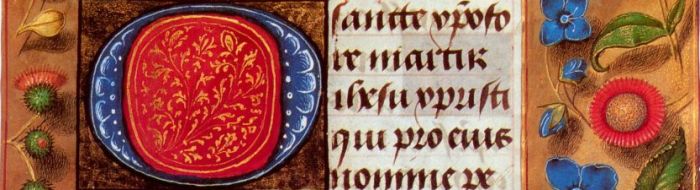 O sancte xpofo
re martir
ihesu xpristi
qui pro eius
nomine pe